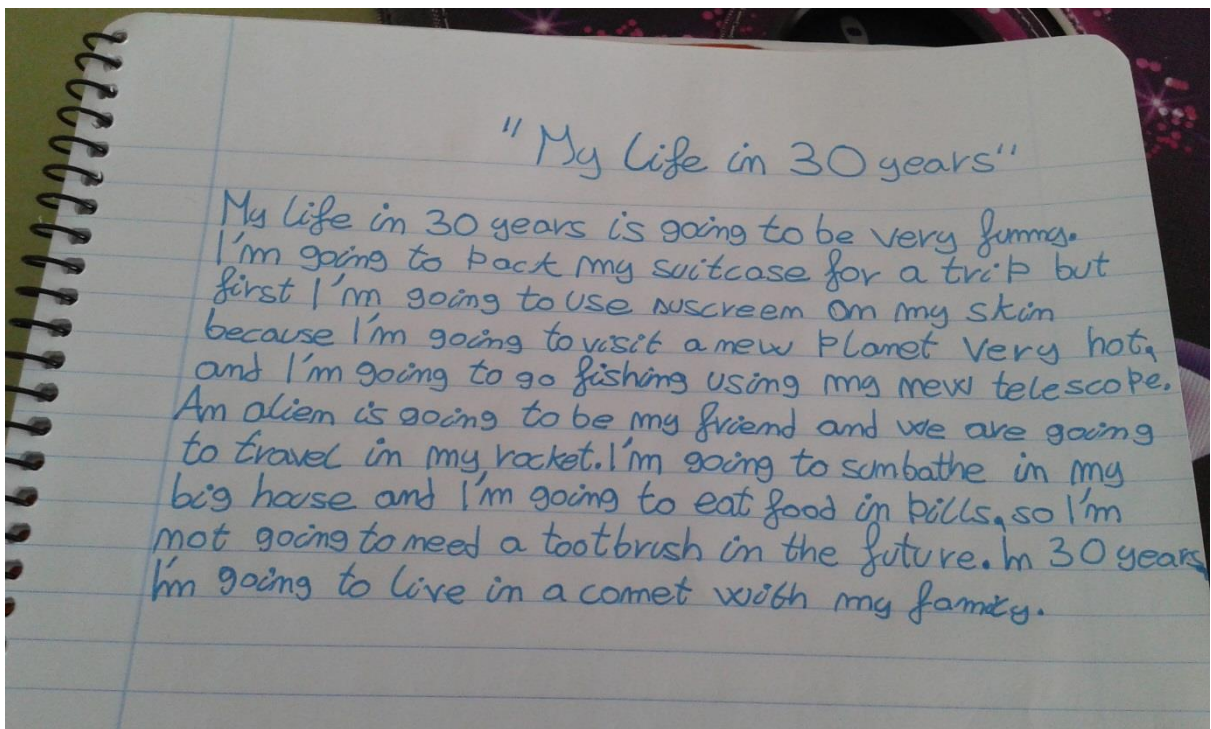 "My life in 30 years"
My life in 30 years is going to be very funny.
I'm going to pack my suitcase for a trip but
first I'm going to use suscreem on my skin
because I'm going to visit a new planet very hot,
and I'm going to go fishing using my new telescope.
An aliem is going to be my friend and we are going
to travel in my rocket. I'm going to sumbathe in my
big house and I'm going to eat food in pills, so I'm
not going to need a tootbrush in the future. In 30 years
I'm going to live in a comet with my family.